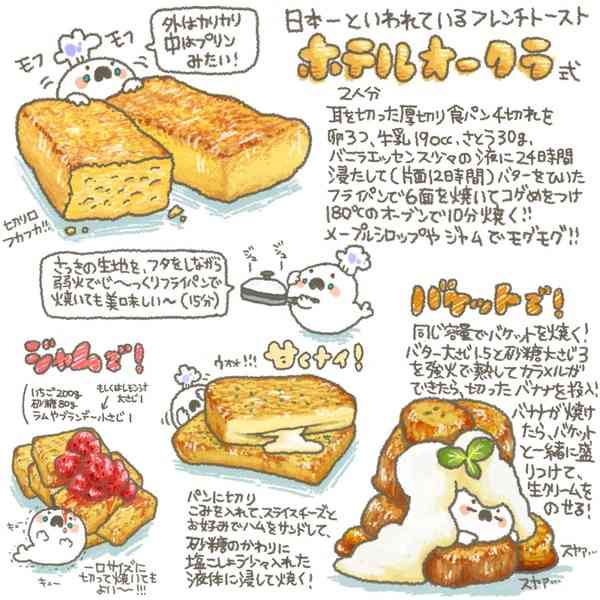 日本一といわれているフレンチトースト
ホテルオークラ式
モフ
モフ
外はカリカリ
中はプリン
みたい!
切り口
フカフカ!!
2人分
耳を切った厚切り食パン4切れを
卵3つ、牛乳190cc、さとう30g、
バニラエッセンス少々の液に24時間
浸たして(片面12時間)バターをひいた
フライパンで6面を焼いてコゲめをつけ
180℃のオーブンで10分焼く!!
メープルシロップやジャムでモグモグ!!
さっきの生地を、フタをしながら
弱火でじ〜っくりフライパンで
焼いても美味しい〜(15分)
ジュ
ジュ
ジャムで!
いちご200g
砂糖80g
ラムやブランデー小さじ1
もしくはレモン汁
大さじ1
キュー
キュー
一口サイズに
切って焼いても
よい〜!!!
甘くナイ!
ウホッ!!!
パンに切り
こみを入れて、スライスチーズと
お好みでハムをサンドして、
砂糖のかわりに
塩こしょう少々入れた
液体に浸して焼く!
バケットで!
同じ容量でバケットを焼く!
バター大さじ1.5と砂糖大さじ3
を強火で熱してカラメルが
できたら、切ったバナナを投入!
バナナが焼け
たら、バケット
と一緒に盛
りつけて、
生クリームを
のせる!
スヤァ…
スヤァ…